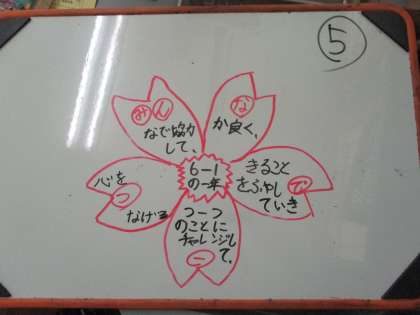 ⑤
みん
なで協力
して、
な
か良く、
で
きること
をふやし
ていき
一
つ一つ
のことに
チャレンジし
て、
心を
つ
なげる
6-1
の一年